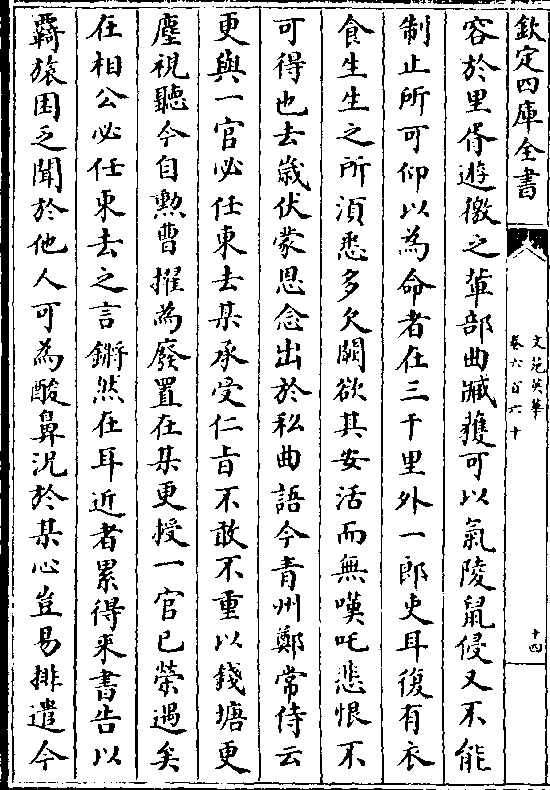 欽定四庫全書
文苑英華
卷六百六十
十四
容於里胥遊徼之輩部曲臧獲可以氣陵鼠侵又不能
制止所可仰以為命者在三千里外一郎吏耳復有衣
食生生之所須悉多欠闕欲其安活而無嘆吒悲恨不
可得也去歲伏蒙恩念出於私曲語今青州鄭常侍云
更與一官必任東去某承受仁旨不敢不重以錢塘更
塵視聽今自勲曹擢為廢置在某更授一官已榮遇矣
在相公必任東去之言鏘然在耳近者累得來書告以
羇旅困乏聞於他人可為酸鼻況於某心豈易排遣今